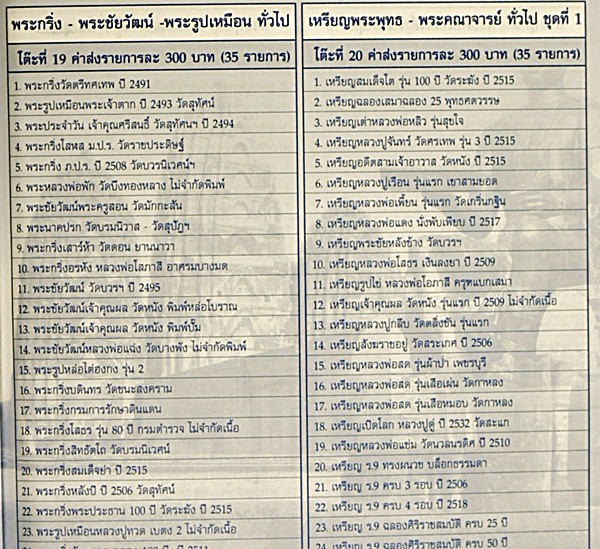 พระกริ่ง - พระชัยวัฒน์ -พระรูปเหมือน ทั่วไป
โต๊ะที่ 19 ค่าส่งรายการละ 300 บาท (35 รายการ)
1. พระกริ่งวัดตรีทศเทพ ปี 2491
2. พระรูปเหมือนพระเจ้าตาก ปี 2493 วัดสุทัศน์
3. พระประจำวัน เจ้าคุณศรีสนธิ์ วัดสุทัศนฯ ปี 2494
4. พระกริ่งโสฬส ม.ป.ร. วัดราชประดิษฐ์
5. พระกริ่ง ภ.ป.ร. ปี 2508 วัดบวรนิเวศน์ฯ
6. พระหลวงพ่อพัก วัดบึงทองหลาง ไม่จำกัดพิมพ์
7. พระชัยวัฒน์พระครูสอน วัดมักกะสัน
8. พระนาคปรก วัดบรมนิวาส - วัดสุปัฏฯ
9. พระกริ่งเสาร์ห้า วัดดอน ยานนาวา
10. พระกริ่งอรหัง หลวงพ่อโสภาสี อาศรมบางมด
11. พระชัยวัฒน์ วัดบวรฯ ปี 2495
12. พระชัยวัฒน์เจ้าคุณผล วัดหนัง พิมพ์หล่อโบราณ
13. พระชัยวัฒน์เจ้าคุณผล วัดหนัง พิมพ์ปั๊ม
14. พระชัยวัฒน์หลวงพ่อแฉ่ง วัดบางพัง ไม่จำกัดพิมพ์
15. พระรูปหล่อไต่ฮงกง รุ่น 2
16. พระกริ่งบดินทร วัดชนะสงคราม
17. พระกริ่งกรมการรักษาดินแดน
18. พระกริ่งโสธร รุ่น 80 ปี กรมตำรวจ ไม่จำกัดเนื้อ
19. พระกริ่งสิทธัตโถ วัดบรมนิเวศน์
20. พระกริ่งสมเด็จย่า ปี 2515
21. พระกริ่งหลังปิ ปี 2506 วัดสุทัศน์
22. พระกริ่งพระประธาน 100 ปี วัดระฆัง ปี 2515
23. พระรูปเหมือนหลวงปู่ทวด เบตง 2 ไม่จำกัดเนื้อ
เหรียญพระพุทธ - พระคณาจารย์ ทั่วไป ชุดที่ 1
โต๊ะที่ 20 ค่าส่งรายการละ 300 บาท (35 รายการ)
1. เหรียญสมเด็จโต รุ่น 100 ปี วัดระฆัง ปี 2515
2. เหรียญฉลองเสมาฉลอง 25 พุทธศตวรรษ
3. เหรียญเต่าหลวงพ่อหลิว รุ่นสุขใจ
4. เหรียญหลวงปู่จันทร์ วัดศรเทพ รุ่น 3 ปี 2515
5. เหรียญอดีตสามเจ้าอาวาส วัดหนัง ปี 2515
6. เหรียญหลวงปู่เรือน รุ่นแรก เขาสามยอด
7. เหรียญหลวงพ่อเพี้ยน รุ่นแรก วัดเกริ่นกฐิน
8. เหรียญหลวงพ่อแดง นั่งพับเพียบ ปี 2517
9. เหรียญพระชัยหลังช้าง วัดบวรฯ
10. เหรียญหลวงพ่อโสธร เงินลงยา ปี 2509
11. เหรียญรูปไข่ หลวงพ่อโอภาสี ครุฑแบกเสมา
12. เหรียญเจ้าคุณผล วัดหนัง รุ่นแรก ปี 2509 ไม่จำกัดเนื้อ
13. เหรียญหลวงปู่กลีบ วัดตลิ่งชัน รุ่นแรก
14. เหรียญสังฆราชอยู่ วัดสระเกศ ปี 2506
15. เหรียญหลวงพ่อสด รุ่นผ้าป่า เพชรบุรี
16. เหรียญหลวงพ่อสด รุ่นเสือเผ่น วัดกาหลง
17. เหรียญหลวงพ่อสด รุ่นเสือหมอบ วัดกาหลง
18. เหรียญเปิดโลก หลวงปู่ดู่ ปี 2532 วัดสะแก
19. เหรียญหลวงพ่อแช่ม วัดนวลนรดิศ ปี 2510
20. เหรียญ ร.9 ทรงผนวช บล็อกธรรมดา
21. เหรียญ ร.9 ครบ 3 รอบ ปี 2506
22. เหรียญ ร.9 ครบ 4 รอบ ปี 2518
23. เหรียญ ร.9 ฉลองศิริราชสมบัติ ครบ 25 ปี
24. เหรียญ ร.9 ฉลองศิริราชสมบัติ ครบ 50 ปี